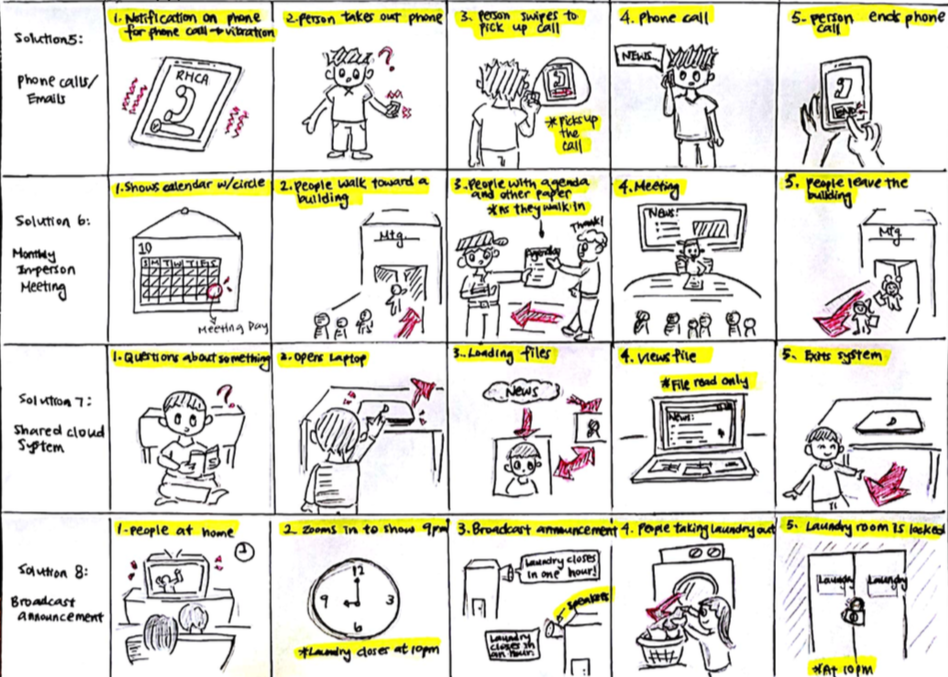 Solution5:
Phone calls/
Emails
1. Notification on phone
for phone call → vibration
RHCA
2. Person takes out phone
?
3. Person swipes to
pick up call
*Picks up
the
call
4. Phone call
NEWS
5. Person ends phone
call
Solution 6:
Monthly
In-person
Meeting
1. Shows calendar w/circle
10
S M T W T F S
Meeting Day
2. People walk toward a
building
Mtg.
3. People with agenda
and other paper
*As they walk in
Agenda
Thank!
4. Meeting
News:
5. People leave the
building
Mtg
Solution 7:
Shared cloud
System
1. Questions about something
?
2. Opens Laptop
3. Loading files
News
4. Views file
*File read only
News:
5. Exits system
Solution 8:
Broadcast
announcement
1. People at home
2. Zooms in to show 9pm
12
9 3
6
*Laundry closes at 10pm
3. Broadcast announcement
Laundry closes
in one hour!
Speakers
Laundry
closes in
an hour!
4. People taking laundry out
5. Laundry room is locked
Laundry Laundry
*At 10pm